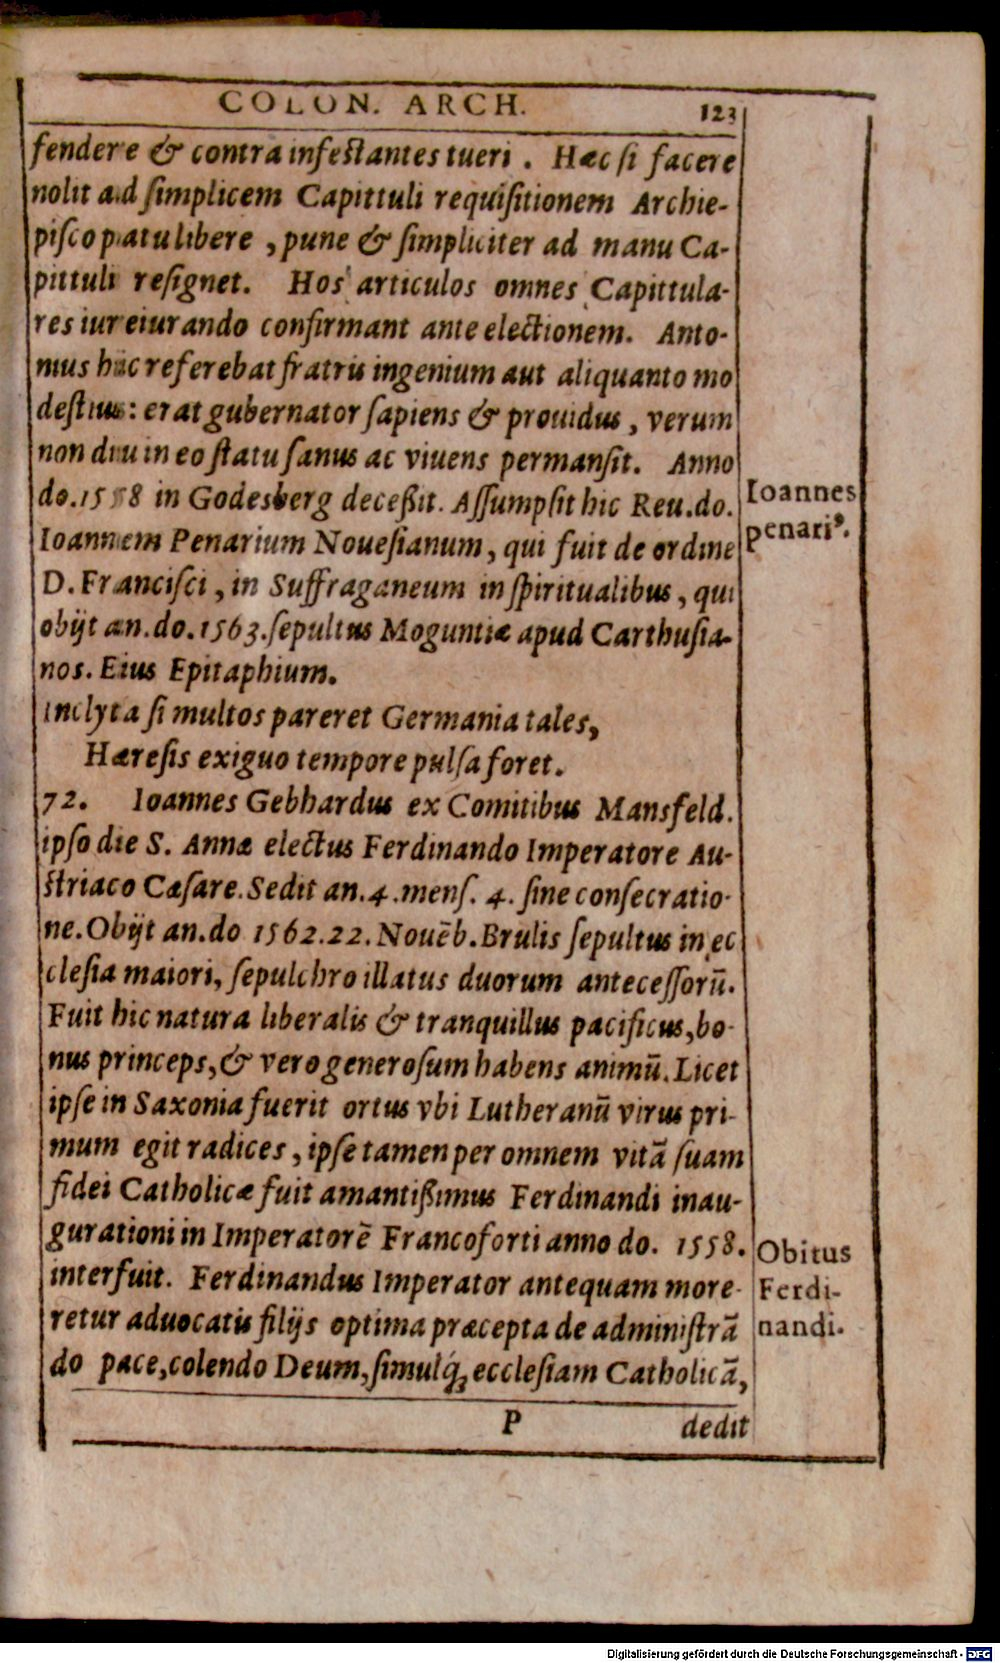 COLON. ARCH. 123
fendere & contra infestantes tueri. Hæc si facere
nolit ad simplicem Capittuli requisitionem Archie-
piscopatu libere, pune & simpliciter ad manu Ca-
pittuli resignet. Hos articulos omnes Capittula-
res iureiurando confirmant ante electionem. Anto-
nius hic referebat fratris ingenium aut aliquanto mo
destius: erat gubernator sapiens & prouidus, verum
non diu in eo statu sanus ac viuens permansit. Anno
do. 1558 in Godesberg deceßit. Assumpsit hic Reu. do.
Ioannem Penarium Nouesianum, qui fuit de ordine
D. Francisci, in Suffraganeum in spiritualibus, qui
obijt an. do. 1563. sepultus Moguntiæ apud Carthusia-
nos. Eius Epitaphium.
Inclyta si multos pareret Germania tales,
Hæresis exiguo tempore pulsa foret.
Ioannes
penari⁹.
72. Ioannes Gebhardus ex Comitibus Mansfeld.
ipso die S. Annæ electus Ferdinando Imperatore Au-
striaco Cæsare. Sedit an. 4. mens. 4. sine consecratio-
ne. Obijt an. do 1562. 22. Nouēb. Brulis sepultus in ec
clesia maiori, sepulchro illatus duorum antecessorū.
Fuit hic natura liberalis & tranquillus pacificus, bo-
nus princeps, & vero generosum habens animū. Licet
ipse in Saxonia fuerit ortus vbi Lutheranū virus pri-
mum egit radices, ipse tamen per omnem vitā suam
fidei Catholicæ fuit amantißimus Ferdinandi inau-
gurationi in Imperatorē Francoforti anno do. 1558.
interfuit. Ferdinandus Imperator antequam more-
retur aduocatis filijs optima præcepta de administrā
do pace, colendo Deum, simulq́₃ ecclesiam Catholicā,
Obitus
Ferdi-
nandi.
P dedit
Digitalisierung gefördert durch die Deutsche Forschungsgemeinschaft - DFG